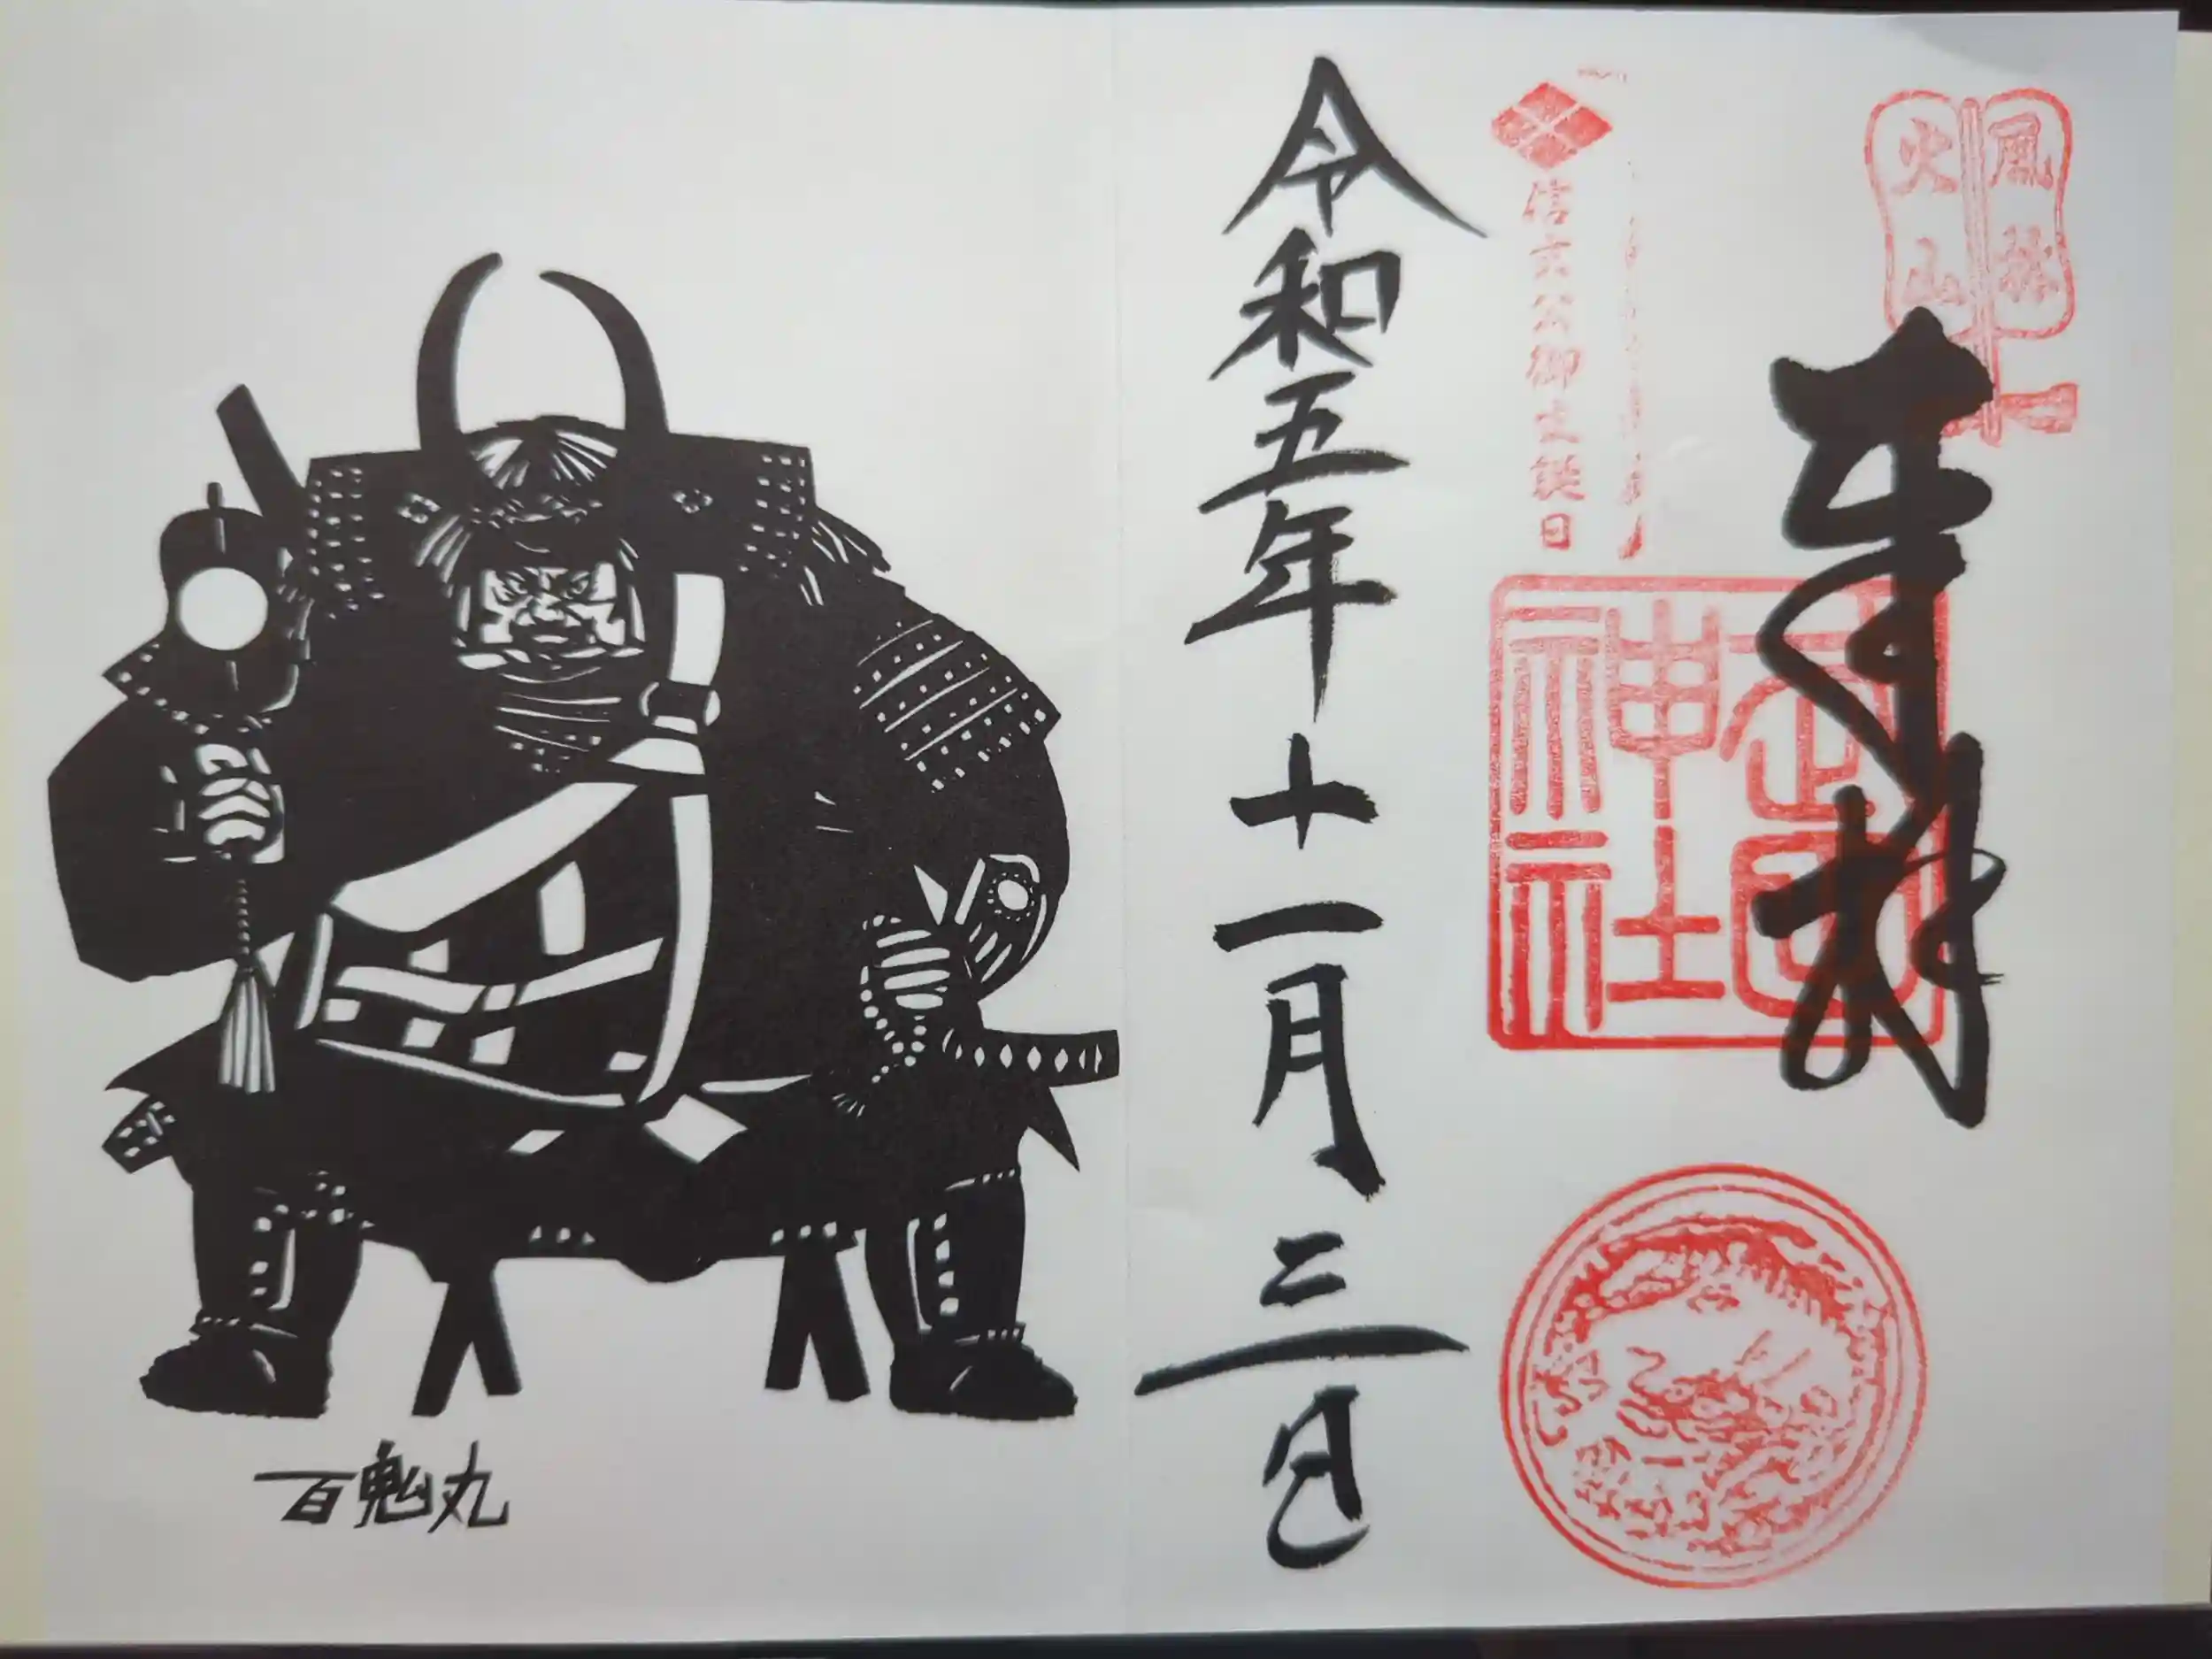 風林
火山
奉拝
武田
神社
信玄公御生誕日
令和五年十一月三日
百鬼丸